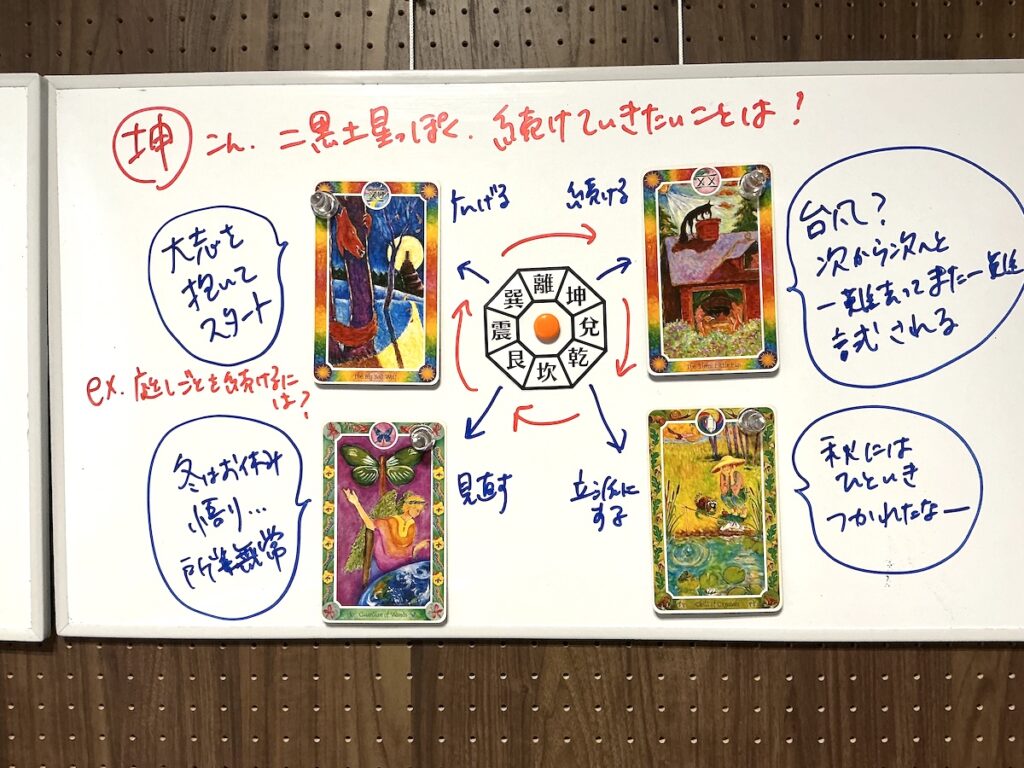 坤 こん. 二黒土星っぽく. 続けていきたいことは?
大志を
抱いて
スタート
広げる
続ける
台風?
次から次へと
一難去ってまた一難
試される
離
坤
兌
乾
坎
艮
震
巽
ex. 庭しごとを続けるに
は?
冬はお休み
悟り...
所業無常
見直す
立派に
する
秋には
ひといき
つかれたなー
XX
Guardian of Wands